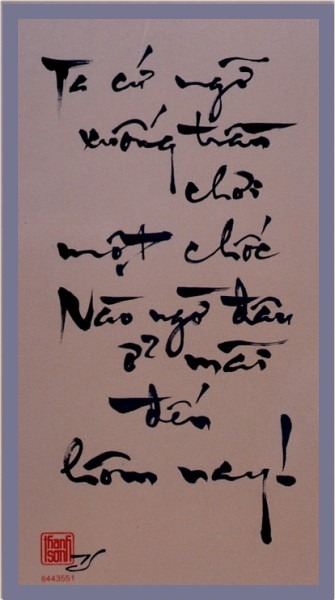 Ta cứ ngỡ
xuống trần
chơi
một chốc
Nào ngờ đâu
ở mãi
đến
hôm nay!
thanh
sơn
8443551